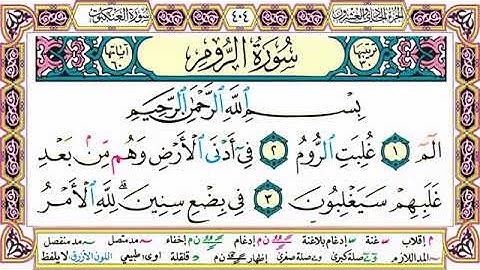 سورة العنكبوت ٤٠٤ الجزء الحادي والعشرون
ترتيبها سُورَةُ الرُّومِ آياتها ٦٠
بِسْمِ اللَّهِ الرَّحْمَٰنِ الرَّحِيمِ
الٓمٓ ١ غُلِبَتِ ٱلرُّومُ ٢ فِىٓ أَدْنَى ٱلْأَرْضِ وَهُم مِّنۢ بَعْدِ
غَلَبِهِمْ سَيَغْلِبُونَ ٣ فِى بِضْعِ سِنِينَ ۗ لِلَّهِ ٱلْأَمْرُ
م إقلاب غنة إدغام بلاغنة ن م إدغام ن م إخفاء مد متصل مد منفصل
المد اللازم صلة كبرى صلة صغرى إظهار ن م قلقلة أوى: طبيعي اللون الأزرق لا يلفظ